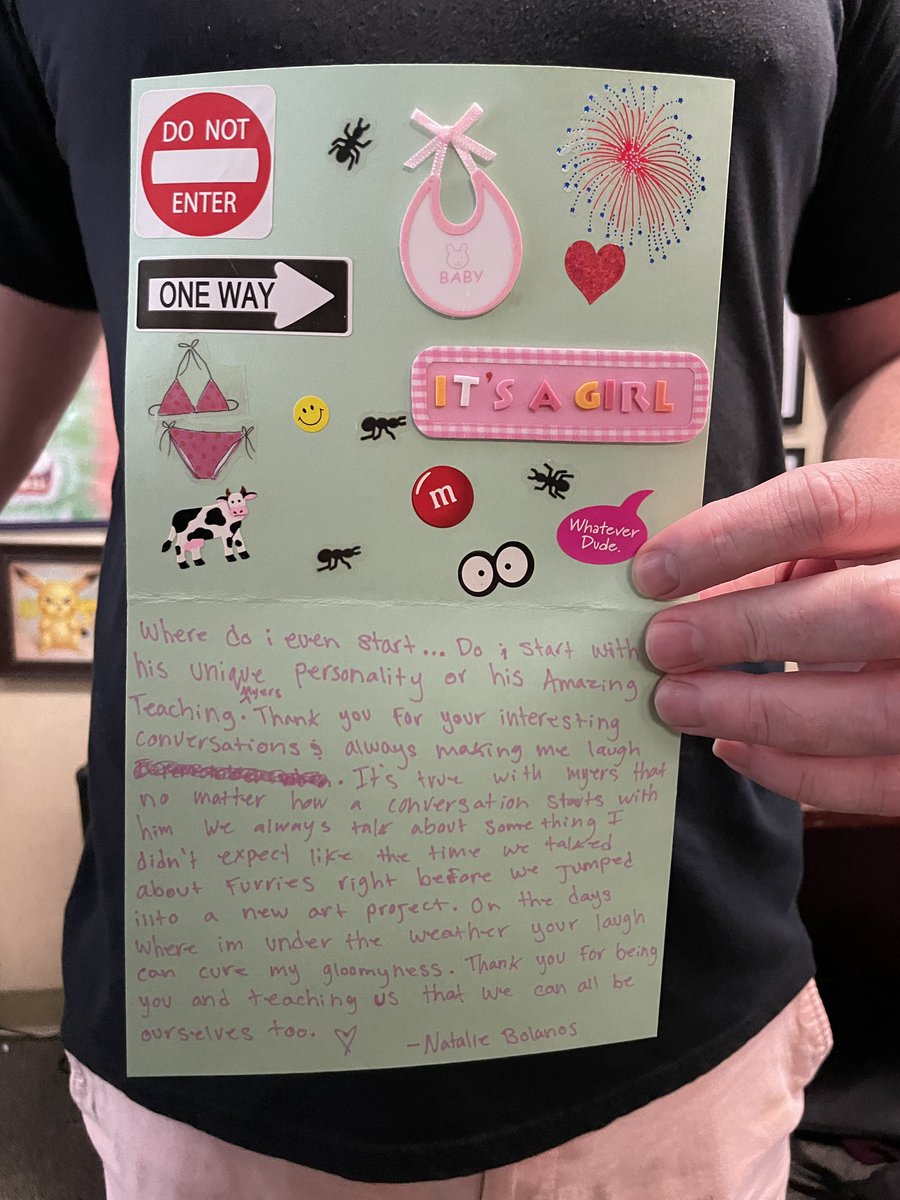 DO NOT
ENTER
BABY
ONE WAY
IT'S A GIRL
m
Whatever
Dude.
Where do i even start... Do i start with
his unique personality or his Amazing
Teaching. Myers Thank you for your interesting
conversations & always making me laugh
. It's true with myers that
no matter how a conversation starts with
him we always talk about something I
didn't expect like the time we talked
about furries right before we jumped
into a new art project. On the days
where im under the weather your laugh
can cure my gloomyness. Thank you for being
you and teaching us that we can all be
ourselves too. ♡ -Natalie Bolanos